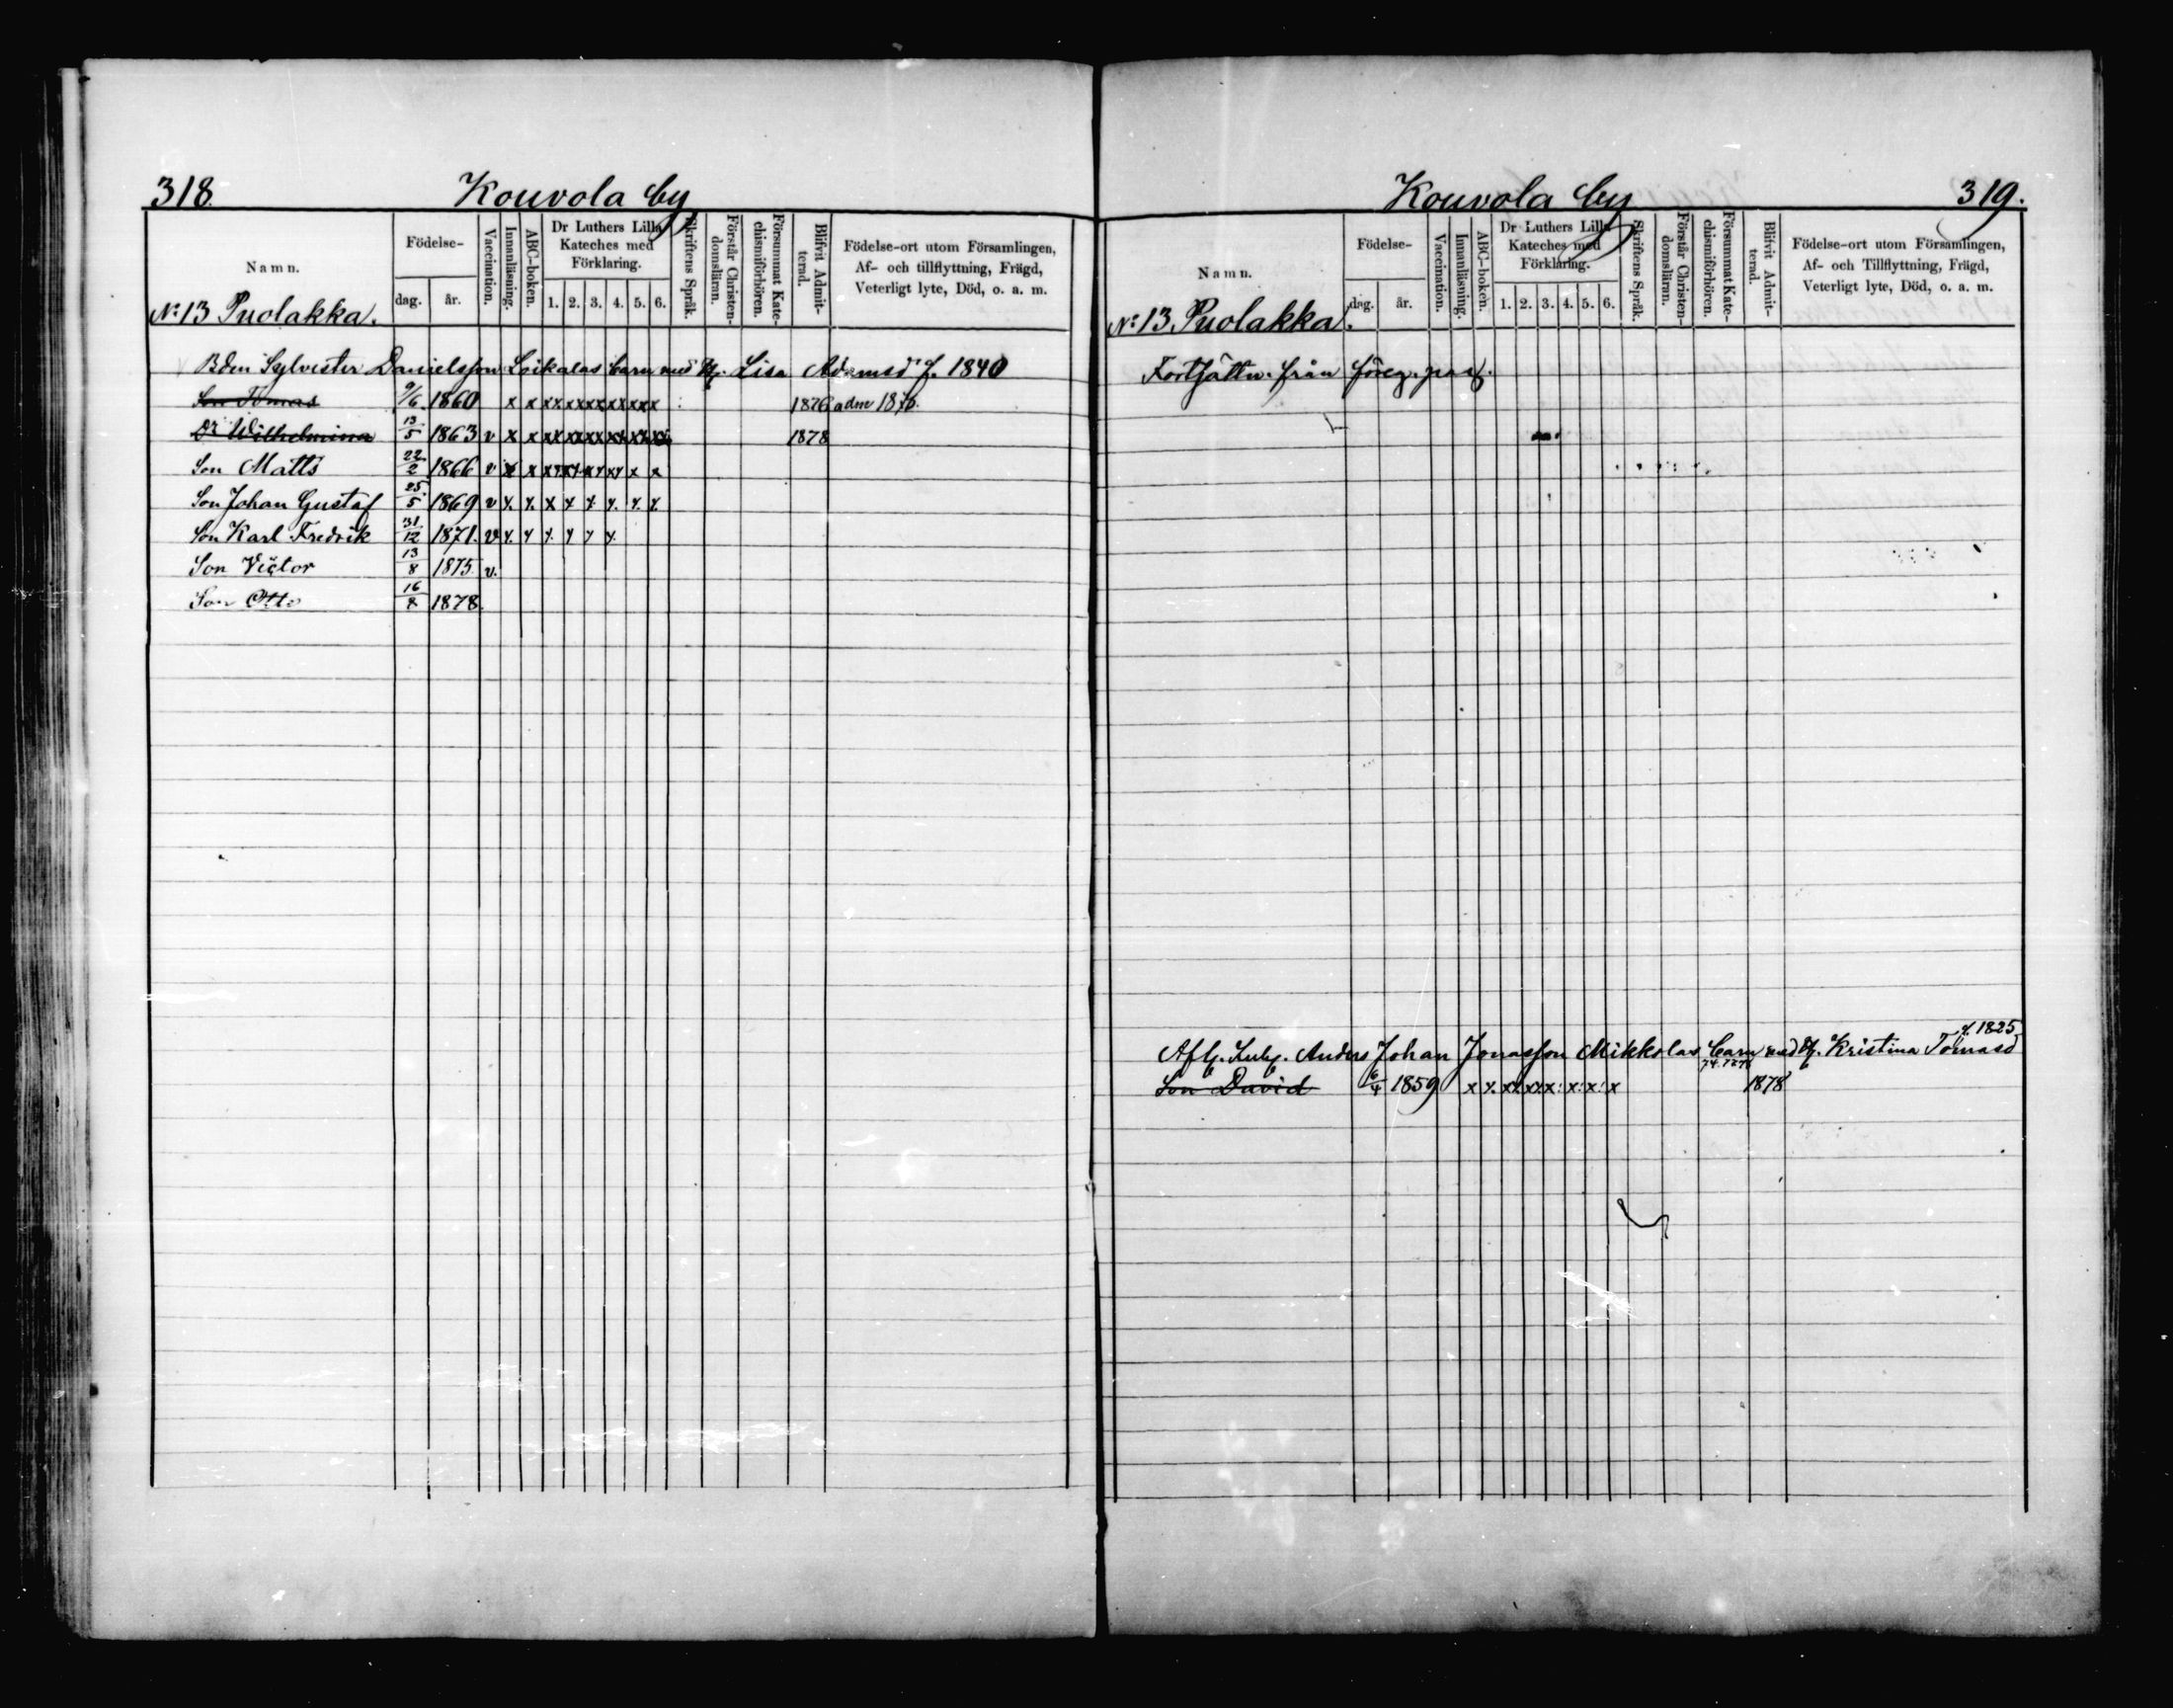 318 Kouvola by
Namn.
Födelse-
dag. år.
Vaccination.
Innanläsning.
ABC-boken.
Dr Luthers Lilla
Kateches med
Förklaring.
1. 2. 3. 4. 5. 6.
Skriftens Språk.
Förstår Christen-
domsläran.
Försummat Kate-
chismiförhören.
Blifvit Admit-
terad.
Födelse-ort utom Församlingen,
Af- och tillflyttning, Frägd,
Veterligt lyte, Död, o. a. m.
No 13 Puolakka.
Bden Sylvester Danielsson Loikalas barn med H. Lisa Adamsd f. 1840
Son Tomas 9/6 1860 x x xx xx xx xx xx xx 1876 adm 1876.
Dr Wilhelmina 13/5 1863 v x x xx xx xx xx xx xx 1878
Son Matts 22/2 1866 v x x xx xx xx xx x x
Son Johan Gustaf 25/5 1869 v x. x. x x x x. x. x.
Son Karl Fredrik 31/12 1871. v x. x x x x x
Son Victor 13/8 1875. v.
Son Otto 16/8 1878.
Kouvola by 319.
Namn.
Födelse-
dag. år.
Vaccination.
Innanläsning.
ABC-boken.
Dr Luthers Lilla
Kateches med
Förklaring.
1. 2. 3. 4. 5. 6.
Skriftens Språk.
Förstår Christen-
domsläran.
Försummat Kate-
chismiförhören.
Blifvit Admit-
terad.
Födelse-ort utom Församlingen,
Af- och Tillflyttning, Frägd,
Veterligt lyte, Död, o. a. m.
No 13 Puolakka.
Fortsättn. från föreg. pag.
f. 1825
Anders Johan Jonasson Mikkolas barn med H. Kristina Tomasd
Son David 6/4 1859 x x. xx xx x: x: x: x 1878